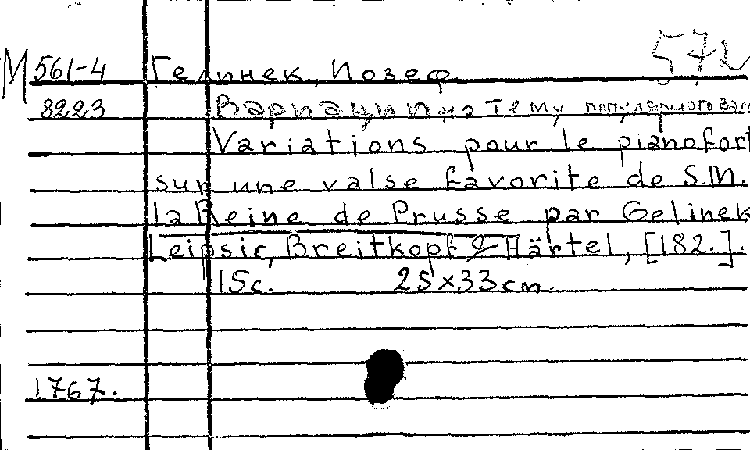 572
М 561-4 Гелинек, Иозеф
8223 Вариации на тему популярного вал
Variations pour le pianofort
sur une valse favorite de S.M.
la Reine de Prusse par Gelinek
Leipsic, Breitkopf & Härtel, [182.].
15c. 25×33cm.
1767.